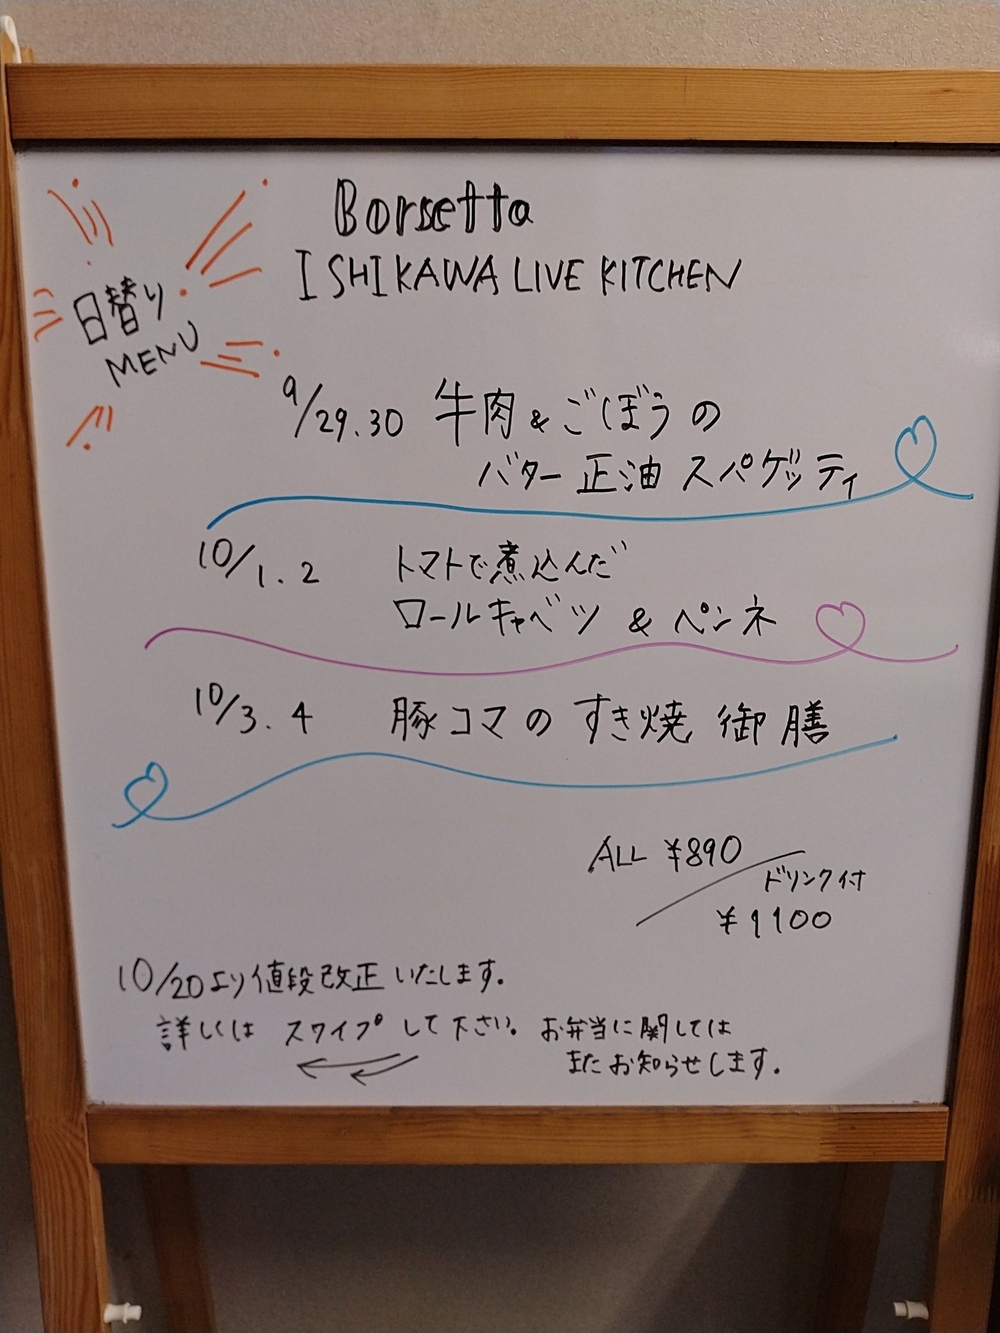 Borsetta
ISHIKAWA LIVE KITCHEN
日替り
MENU
9/29.30 牛肉&ごぼうの
バター正油 スパゲッティ
10/1.2 トマトで煮込んだ
ロールキャベツ & ペンネ
10/3.4 豚コマの すき焼 御膳
ALL ¥890
ドリンク付
¥1100
10/20より値段改正いたします。
詳しくは スワイプして下さい。 お弁当に関しては
またお知らせします。